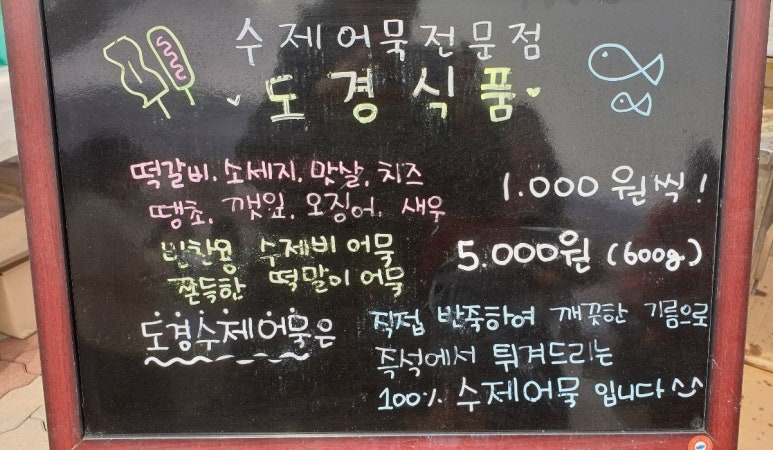 수제어묵전문점
도경식품
떡갈비. 소세지. 맛살. 치즈
땡초. 깻잎. 오징어. 새우
1.000원씩!
반찬용 수제비 어묵
쫀득한 떡말이 어묵
5.000원 (600g)
도경수제어묵은
직접 반죽하여 깨끗한 기름으로
즉석에서 튀겨드리는
100% 수제어묵 입니다